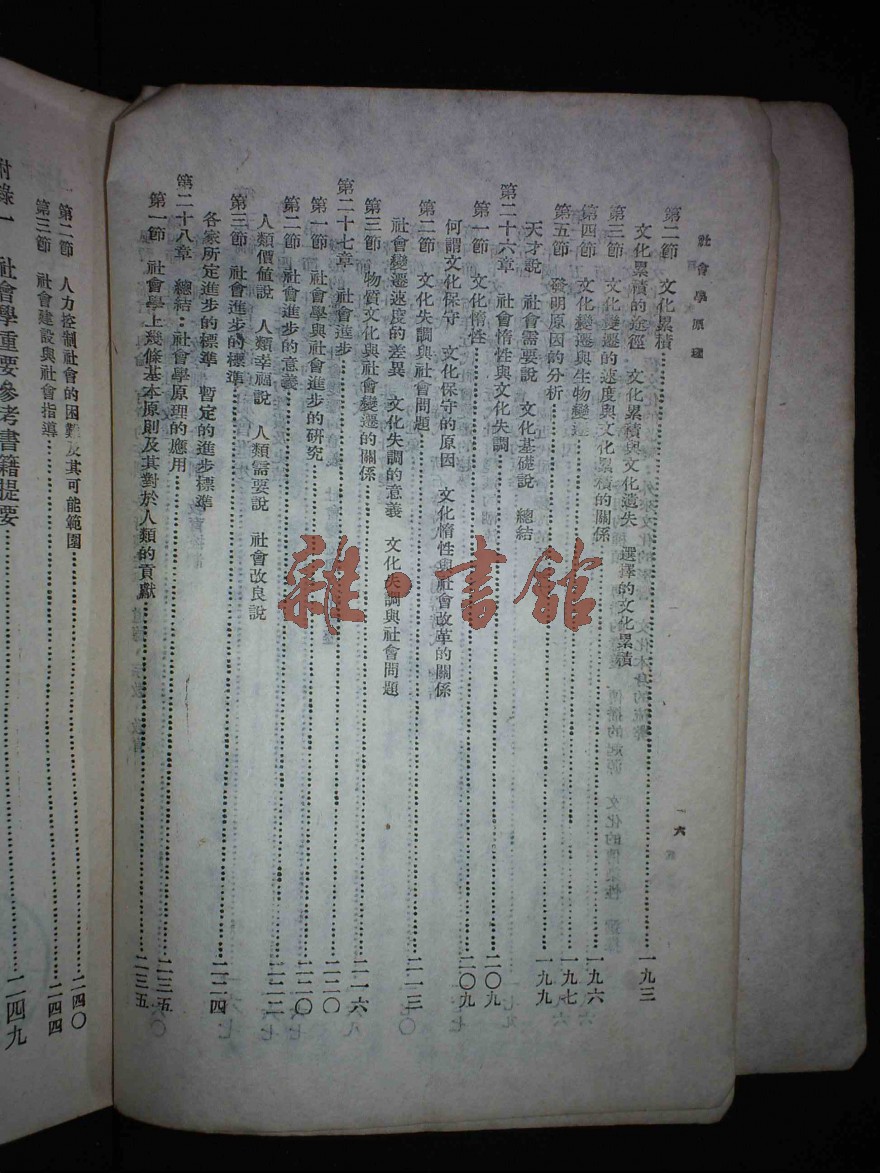 社會學原理
一六
第二節　文化累積⋯⋯一九三
文化累積的途徑　文化累積與文化遺失　選擇的文化累積
第三節　文化變遷的速度與文化累積的關係⋯⋯一九六
第四節　文化變遷與生物變遷⋯⋯一九七
第五節　發明原因的分析⋯⋯一九九
天才說　社會需要說　文化基礎說　總結
第二十六章　社會惰性與文化失調
第一節　文化惰性⋯⋯二〇九
何謂文化保守　文化保守的原因　文化惰性與社會改革的關係
第二節　文化失調與社會問題⋯⋯二一三
社會變遷速度的差異　文化失調的意義　文化失調與社會問題
第三節　物質文化與社會變遷的關係⋯⋯二一六
第二十七章　社會進步⋯⋯二二〇
第一節　社會學與社會進步的研究⋯⋯二二〇
第二節　社會進步的意義⋯⋯二二二
人類價值說　人類幸福說　人類需要說　社會改良說
第三節　社會進步的標準⋯⋯二二四
各家所定進步的標準　暫定的進步標準
第二十八章　總結：社會學原理的應用⋯⋯二三五
第一節　社會學上幾條基本原則及其對於人類的貢獻⋯⋯二三五
第二節　人力控制社會的困難及其可能範圍⋯⋯二四〇
第三節　社會建設與社會指導⋯⋯二四四
附錄一　社會學重要參考書籍提要⋯⋯二四九
雜·書館